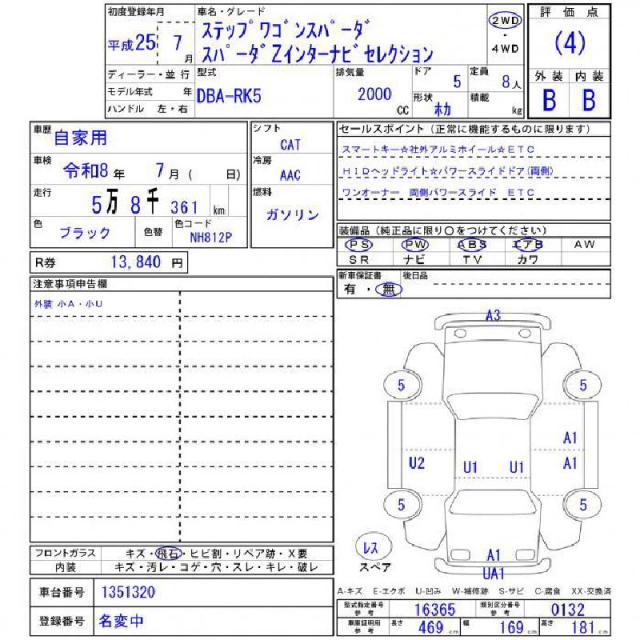 初度登録年月
平成25年 7月
車名・グレード
ステップワゴンスパーダ
スパーダZインターナビセレクション
2WD
・
4WD
評価点
(4)
外装 内装
B B
ディーラー・並行
モデル年式 年
ハンドル 左・右
型式
DBA-RK5
排気量
2000
CC
ドア
5
定員
8人
形状
ホカ
積載
kg
車歴
自家用
車検
令和8年 7月 ( 日)
走行
5万 8千 361 km
色
ブラック
色替
色コード
NH812P
シフト
CAT
冷房
AAC
燃料
ガソリン
R券 13,840 円
セールスポイント (正常に機能するものに限ります)
スマートキー☆社外アルミホイール☆ETC
HIDヘッドライト☆パワースライドドア(両側)
ワンオーナー 両側パワースライド ETC
装備品 (純正品に限り〇をつけてください)
PS PW ABS エアB AW
SR ナビ TV カワ
新車保証書
有・無
後日品
注意事項申告欄
外装 小A・小U
A3
5 5
A1
U2 U1 U1 A1
5 5
レス
スペア
A1
UA1
フロントガラス キズ・飛石・ヒビ割・リペア跡・X要
内装 キズ・汚レ・コゲ・穴・スレ・キレ・破レ
車台番号 1351320
登録番号 名変中
A-キズ E-エクボ U-凹み W-補修跡 S-サビ C-腐食 XX-交換済
型式指定番号 参考 16365 類別区分番号 0132
車庫証明用 参考 長さ 469 cm 幅 169 cm 高さ 181 cm